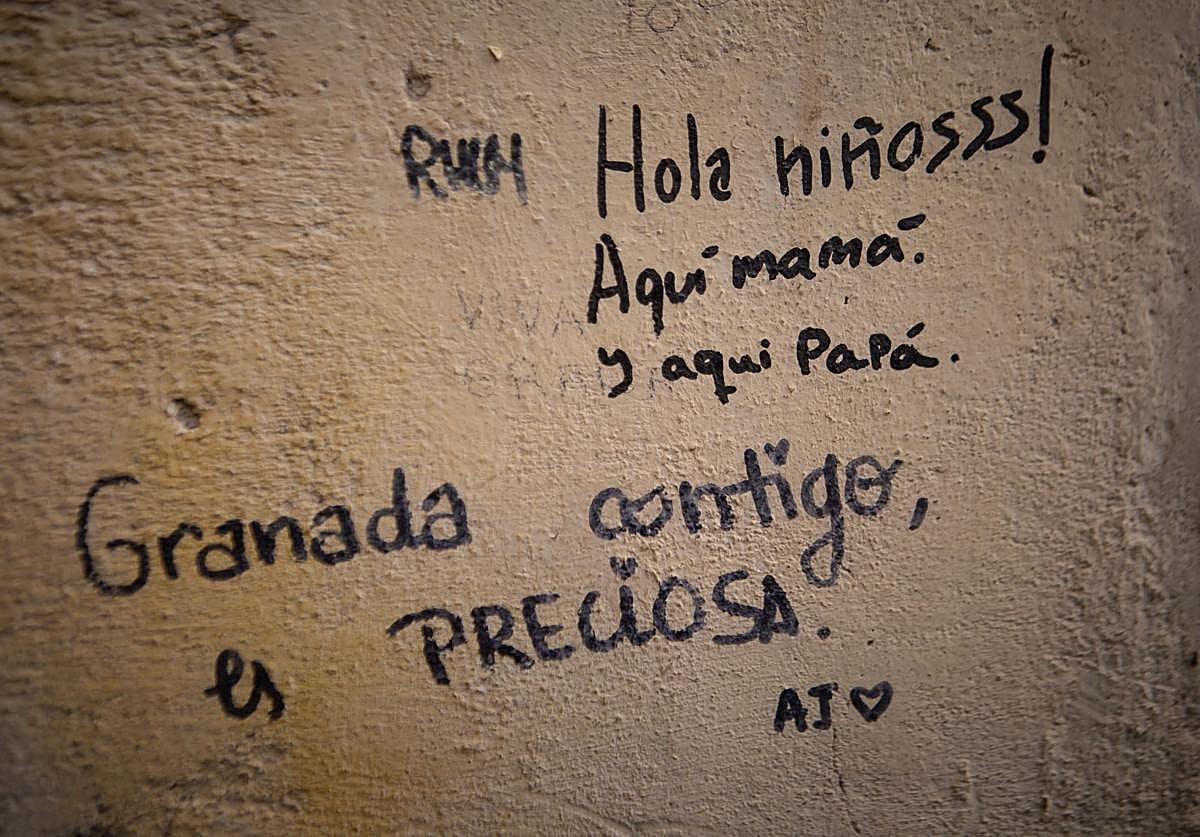 Hola niñosss!
Aquí mamá.
y aqui PaPá.
VIVA
Granada contigo,
es PRECIOSA.
AJ♡